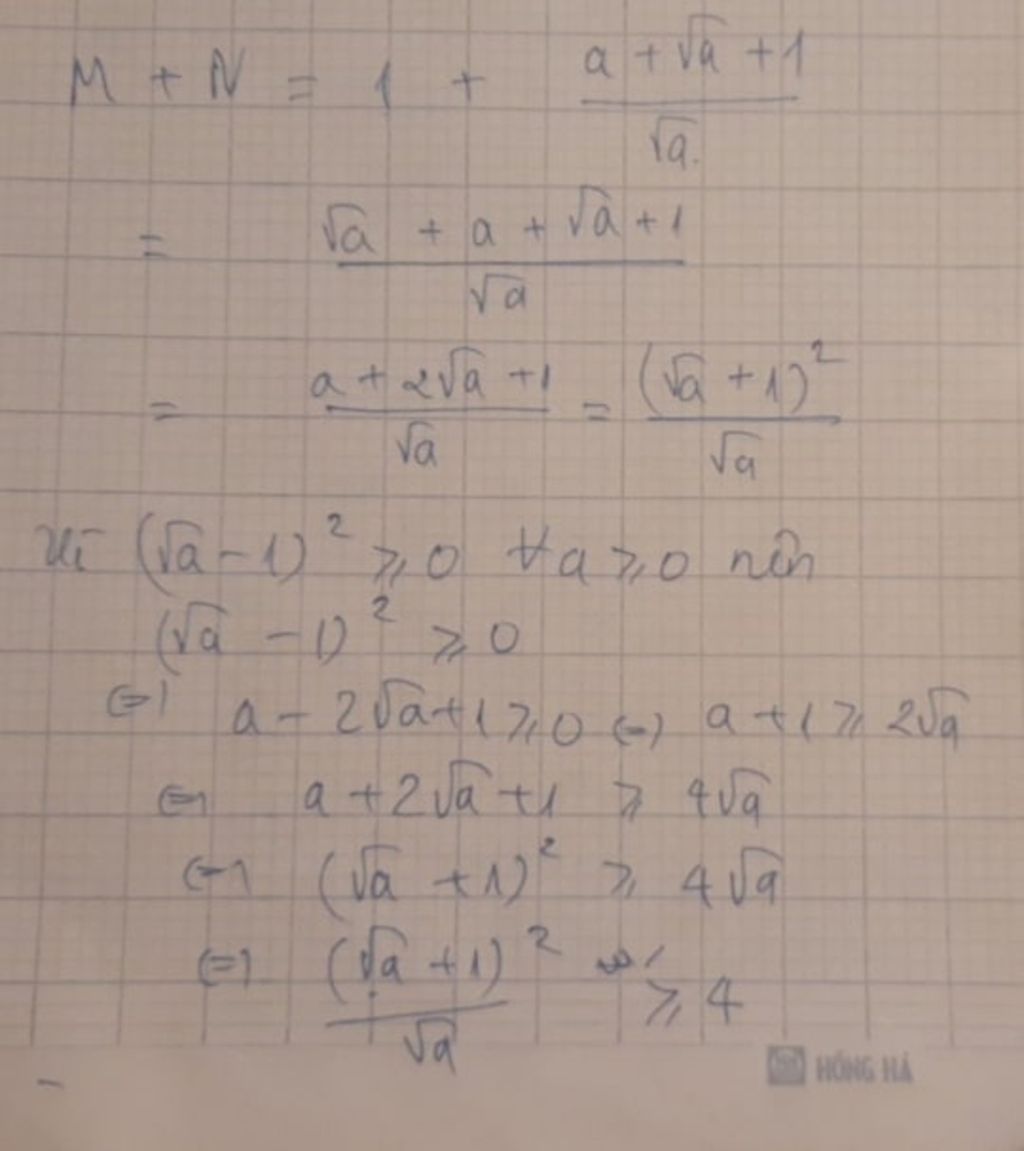 M + N = 1 + (a + √a + 1)/√a
= (√a + a + √a + 1)/√a
= (a + 2√a + 1)/√a = (√a + 1)²/√a
Vì (√a - 1)² ⩾ 0 ∀a ⩾ 0 nên
(√a - 1)² ⩾ 0
⇔ a - 2√a + 1 ⩾ 0 ⇔ a + 1 ⩾ 2√a
⇔ a + 2√a + 1 ⩾ 4√a
⇔ (√a + 1)² ⩾ 4√a
⇔ (√a + 1)²/√a ⩾ 4
HỒNG HÀ